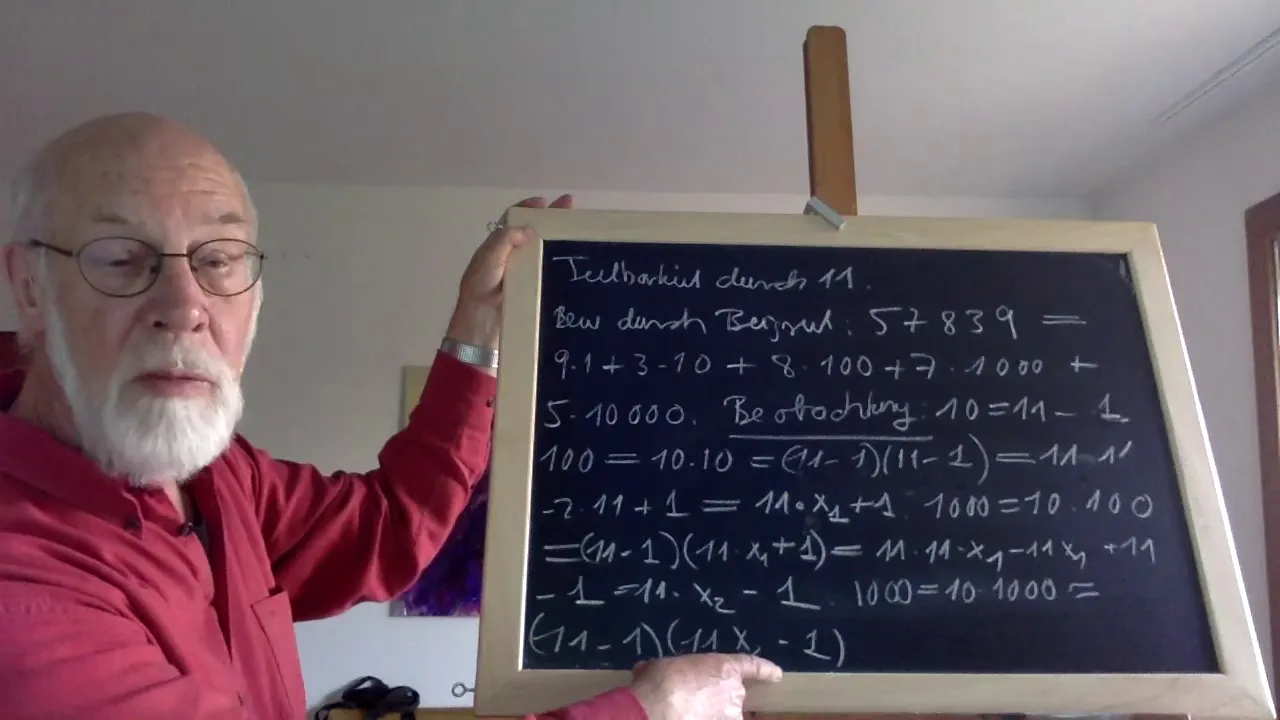 Teilbarkeit durch 11.
Bew durch Beispiel: 57839 =
9·1 + 3·10 + 8·100 + 7·1000 +
5·10000. Beobachtung: 10 = 11 - 1
100 = 10·10 = (11 - 1)(11 - 1) = 11·11
-2·11 + 1 = 11·x₁ + 1. 1000 = 10·100
= (11 - 1)(11·x₁ + 1) = 11·11·x₁ - 11x₁ + 11
- 1 = 11·x₂ - 1. 1000 = 10·1000 =
(11 - 1)(11x - 1)